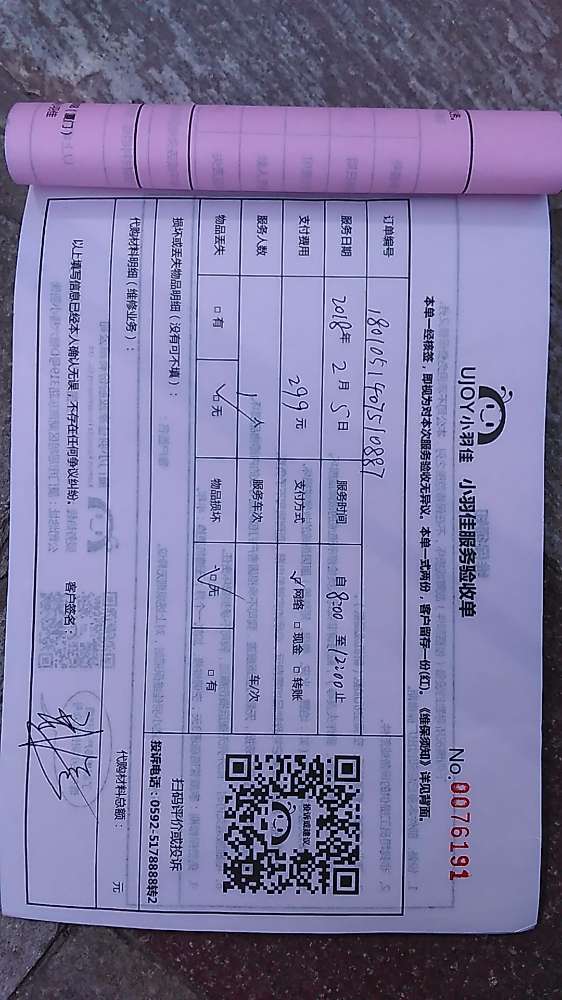 UJOY小羽佳 小羽佳服务验收单
No.0076191
本单一经核签，即视为对本次服务验收无异议。本单一式两份，客户留存一份(红)。《维保须知》详见背面。
订单编号 180105140751088​7
服务日期 2018年 2 月 5 日 服务时间 自 8:00 至 12:00 止
支付费用 299 元 支付方式 网络 现金 转账
服务人数 1人 服务车次 车/次
物品丢失 有 无 物品损坏 无 有
损坏或丢失物品明细（没有可不填）：
投诉或建议
扫码评价或投诉
投诉电话：0592-5178888转2
代购材料明细（维修业务）：
代购材料总额： 元
以上填写信息已经本人确认无误，不存在任何争议纠纷。
客户签名：